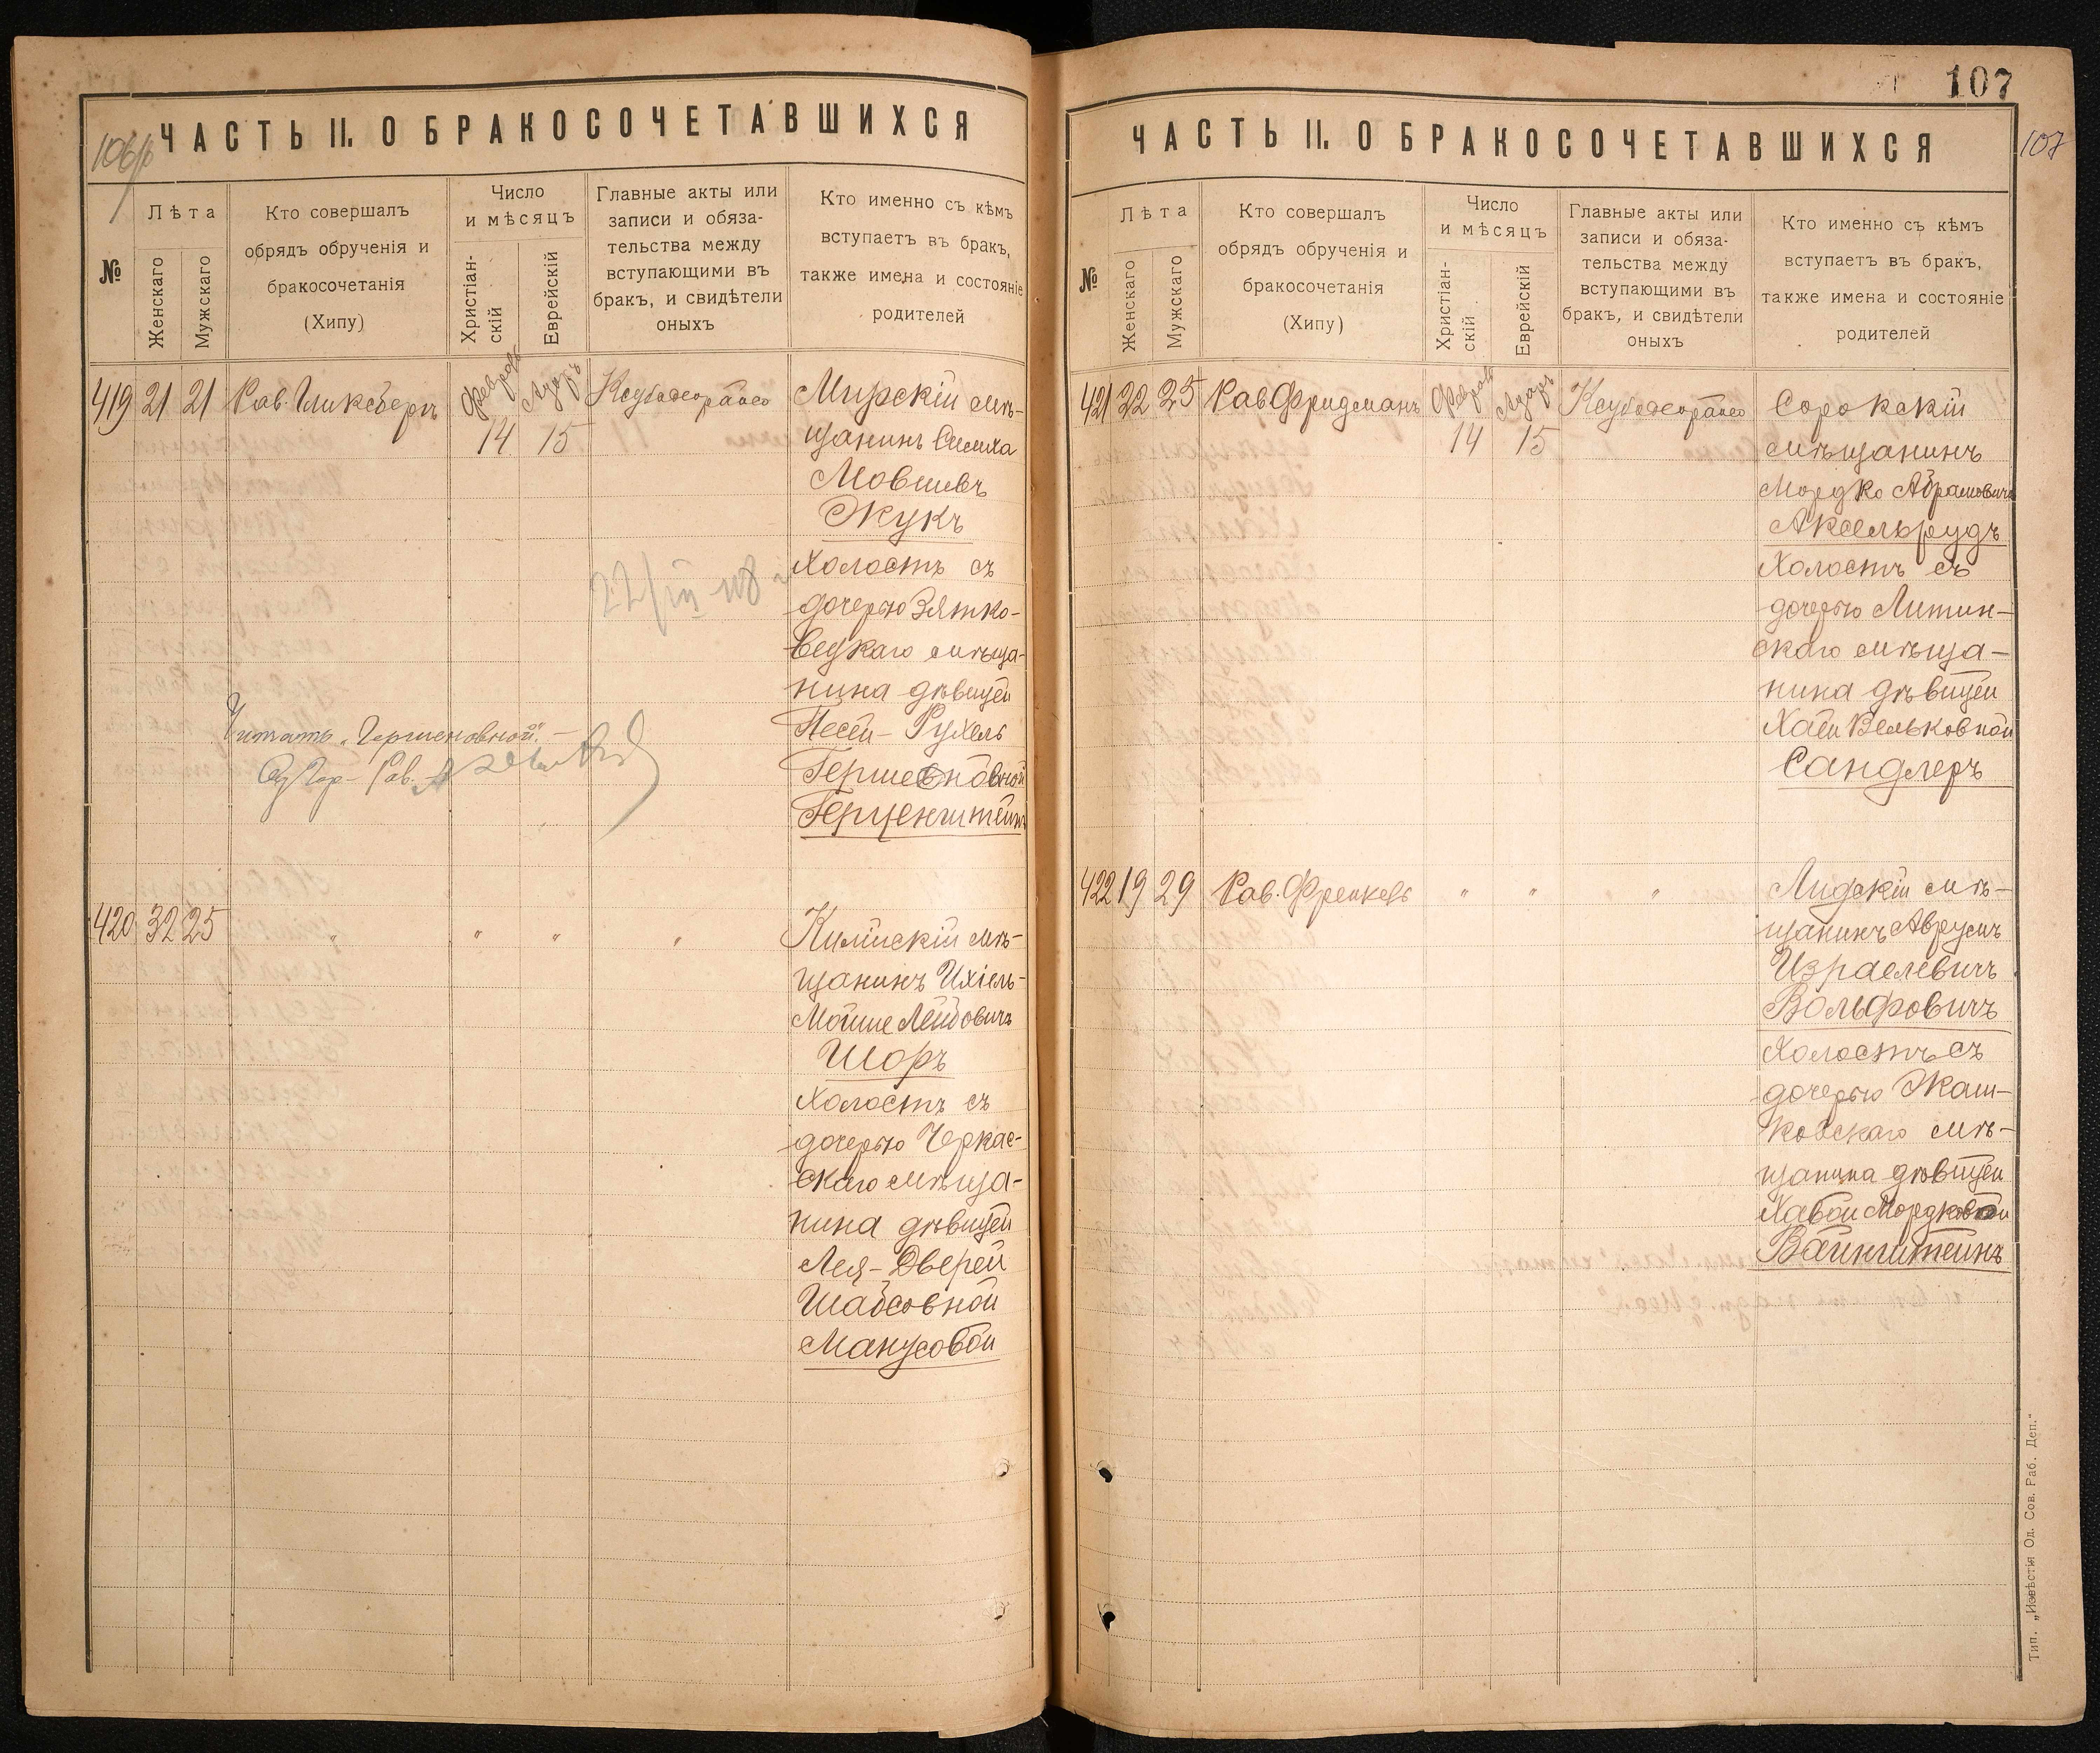 106 об
ЧАСТЬ II. О БРАКОСОЧЕТАВШИХСЯ
№
Лѣта
Женскаго
Мужскаго
Кто совершалъ
обрядъ обрученія и
бракосочетанія
(Хипу)
Число
и мѣсяцъ
Христіан-
скій
Еврейскій
Главные акты или
записи и обяза-
тельства между
вступающими въ
бракъ, и свидѣтели
оныхъ
Кто именно съ кѣмъ
вступаетъ въ бракъ,
также имена и состояніе
родителей
419 21 21 Рав. Гликсбергъ
14 15
Мирскій мѣ-
щанинъ Симха
Мовшевъ
Жукъ
Холостъ съ
дочерью Зятко-
вецкаго мѣща-
нина дѣвицей
Песей-Рухель
Гершеновной
Герценштейнъ
Читать „Гершеновной“.
Од. Гор. Рав.
420 32 25 " " " "
Килійскій мѣ-
щанинъ Ихіель-
Мойше Лейбовичъ
Шоръ
Холостъ съ
дочерью Черкас-
скаго мѣща-
нина дѣвицей
Лея-Двейрей
Шабсовной
Манусовой
107
107
ЧАСТЬ II. О БРАКОСОЧЕТАВШИХСЯ
№
Лѣта
Женскаго
Мужскаго
Кто совершалъ
обрядъ обрученія и
бракосочетанія
(Хипу)
Число
и мѣсяцъ
Христіан-
скій
Еврейскій
Главные акты или
записи и обяза-
тельства между
вступающими въ
бракъ, и свидѣтели
оныхъ
Кто именно съ кѣмъ
вступаетъ въ бракъ,
также имена и состояніе
родителей
421 22 25 Рав. Фридманъ
14 15
Сорокскій
мѣщанинъ
Мордко Абрамовичъ
Аксельрудъ
Холостъ съ
дочерью Литин-
скаго мѣща-
нина дѣвицей
Хаей Вельковной
Сандлеръ
422 19 29 Рав. Френкель " " "
Лидскій мѣ-
щанинъ Аврумъ
Израелевичъ
Вольфовичъ
Холостъ съ
дочерью Жаш-
ковскаго мѣ-
щанина дѣвицей
Хавой Мордковной
Вайнштейнъ
Тип. „Извѣстія Од. Сов. Раб. Деп.“